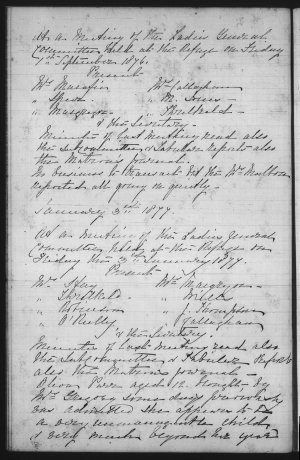 At a Meeting of the Ladies General
Committee held at the Refuge on Friday
1st September 1876.
Present
Mrs Mrs Callaghan
" "
" Macgregor " Threlkeld
& the Secretary
Minutes of last meeting read also
the Subcommittee & Tabular Report also
the Matron's Journal.
No business to transact
reported all going on quietly.
January 3rd 1877
At a Meeting of the Ladies General
Committee held at the Refuge on
Friday the 3rd January 1877.
Present
Mrs Mrs Macgregor
" Threlkeld "
" Robertson " J. Thompson
" O'Reilly " Callaghan
& the Secretary
Minutes of last meeting read also
the Subcommittee & Tabular Report
also the Matron's journal
aged 12 brought by
Mrs some days previously
was admitted she appears to be
a very unmanageable child
& very much beyond her years